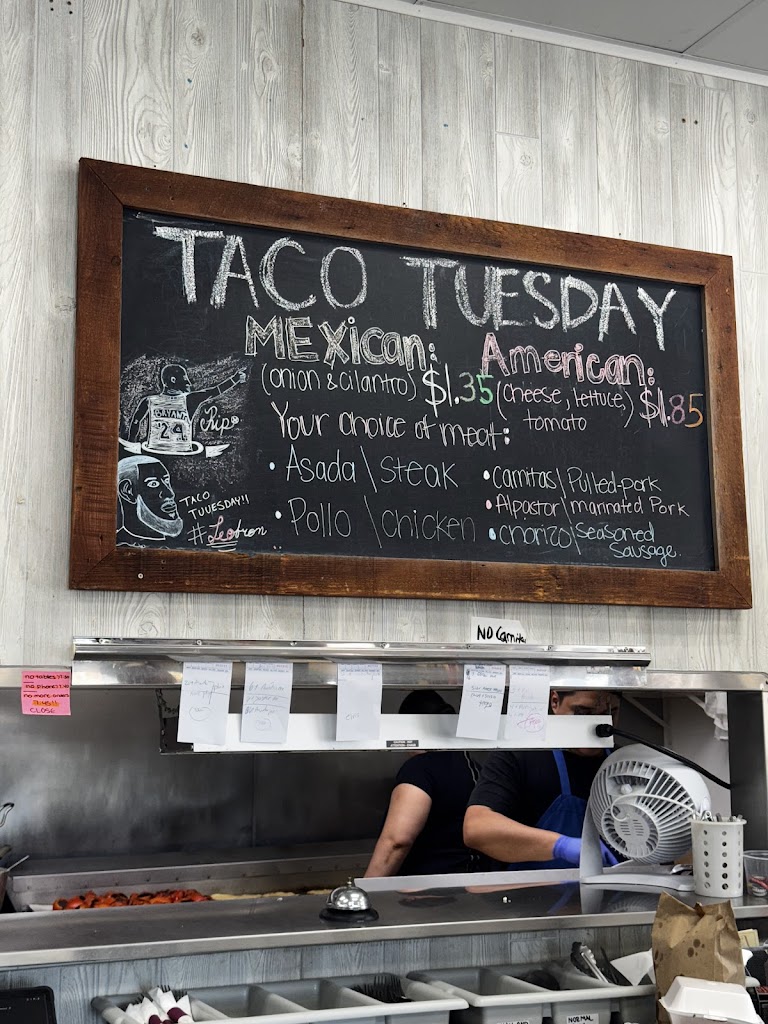 TACO TUESDAY
MExican:
(onion & cilantro) $1.35
American:
(cheese, lettuce, tomato) $1.85
Your choice of meat:
• Asada\steak
• Pollo \chicken
• Carnitas\Pulled-pork
• Alpastor\marinated Pork
• chorizo\Seasoned
Sausage.
BRYANT
24
Rip
TACO
TUUUESDAY!!
#Lebron
NO Carnitas
no more
CLOSE
NORMAL